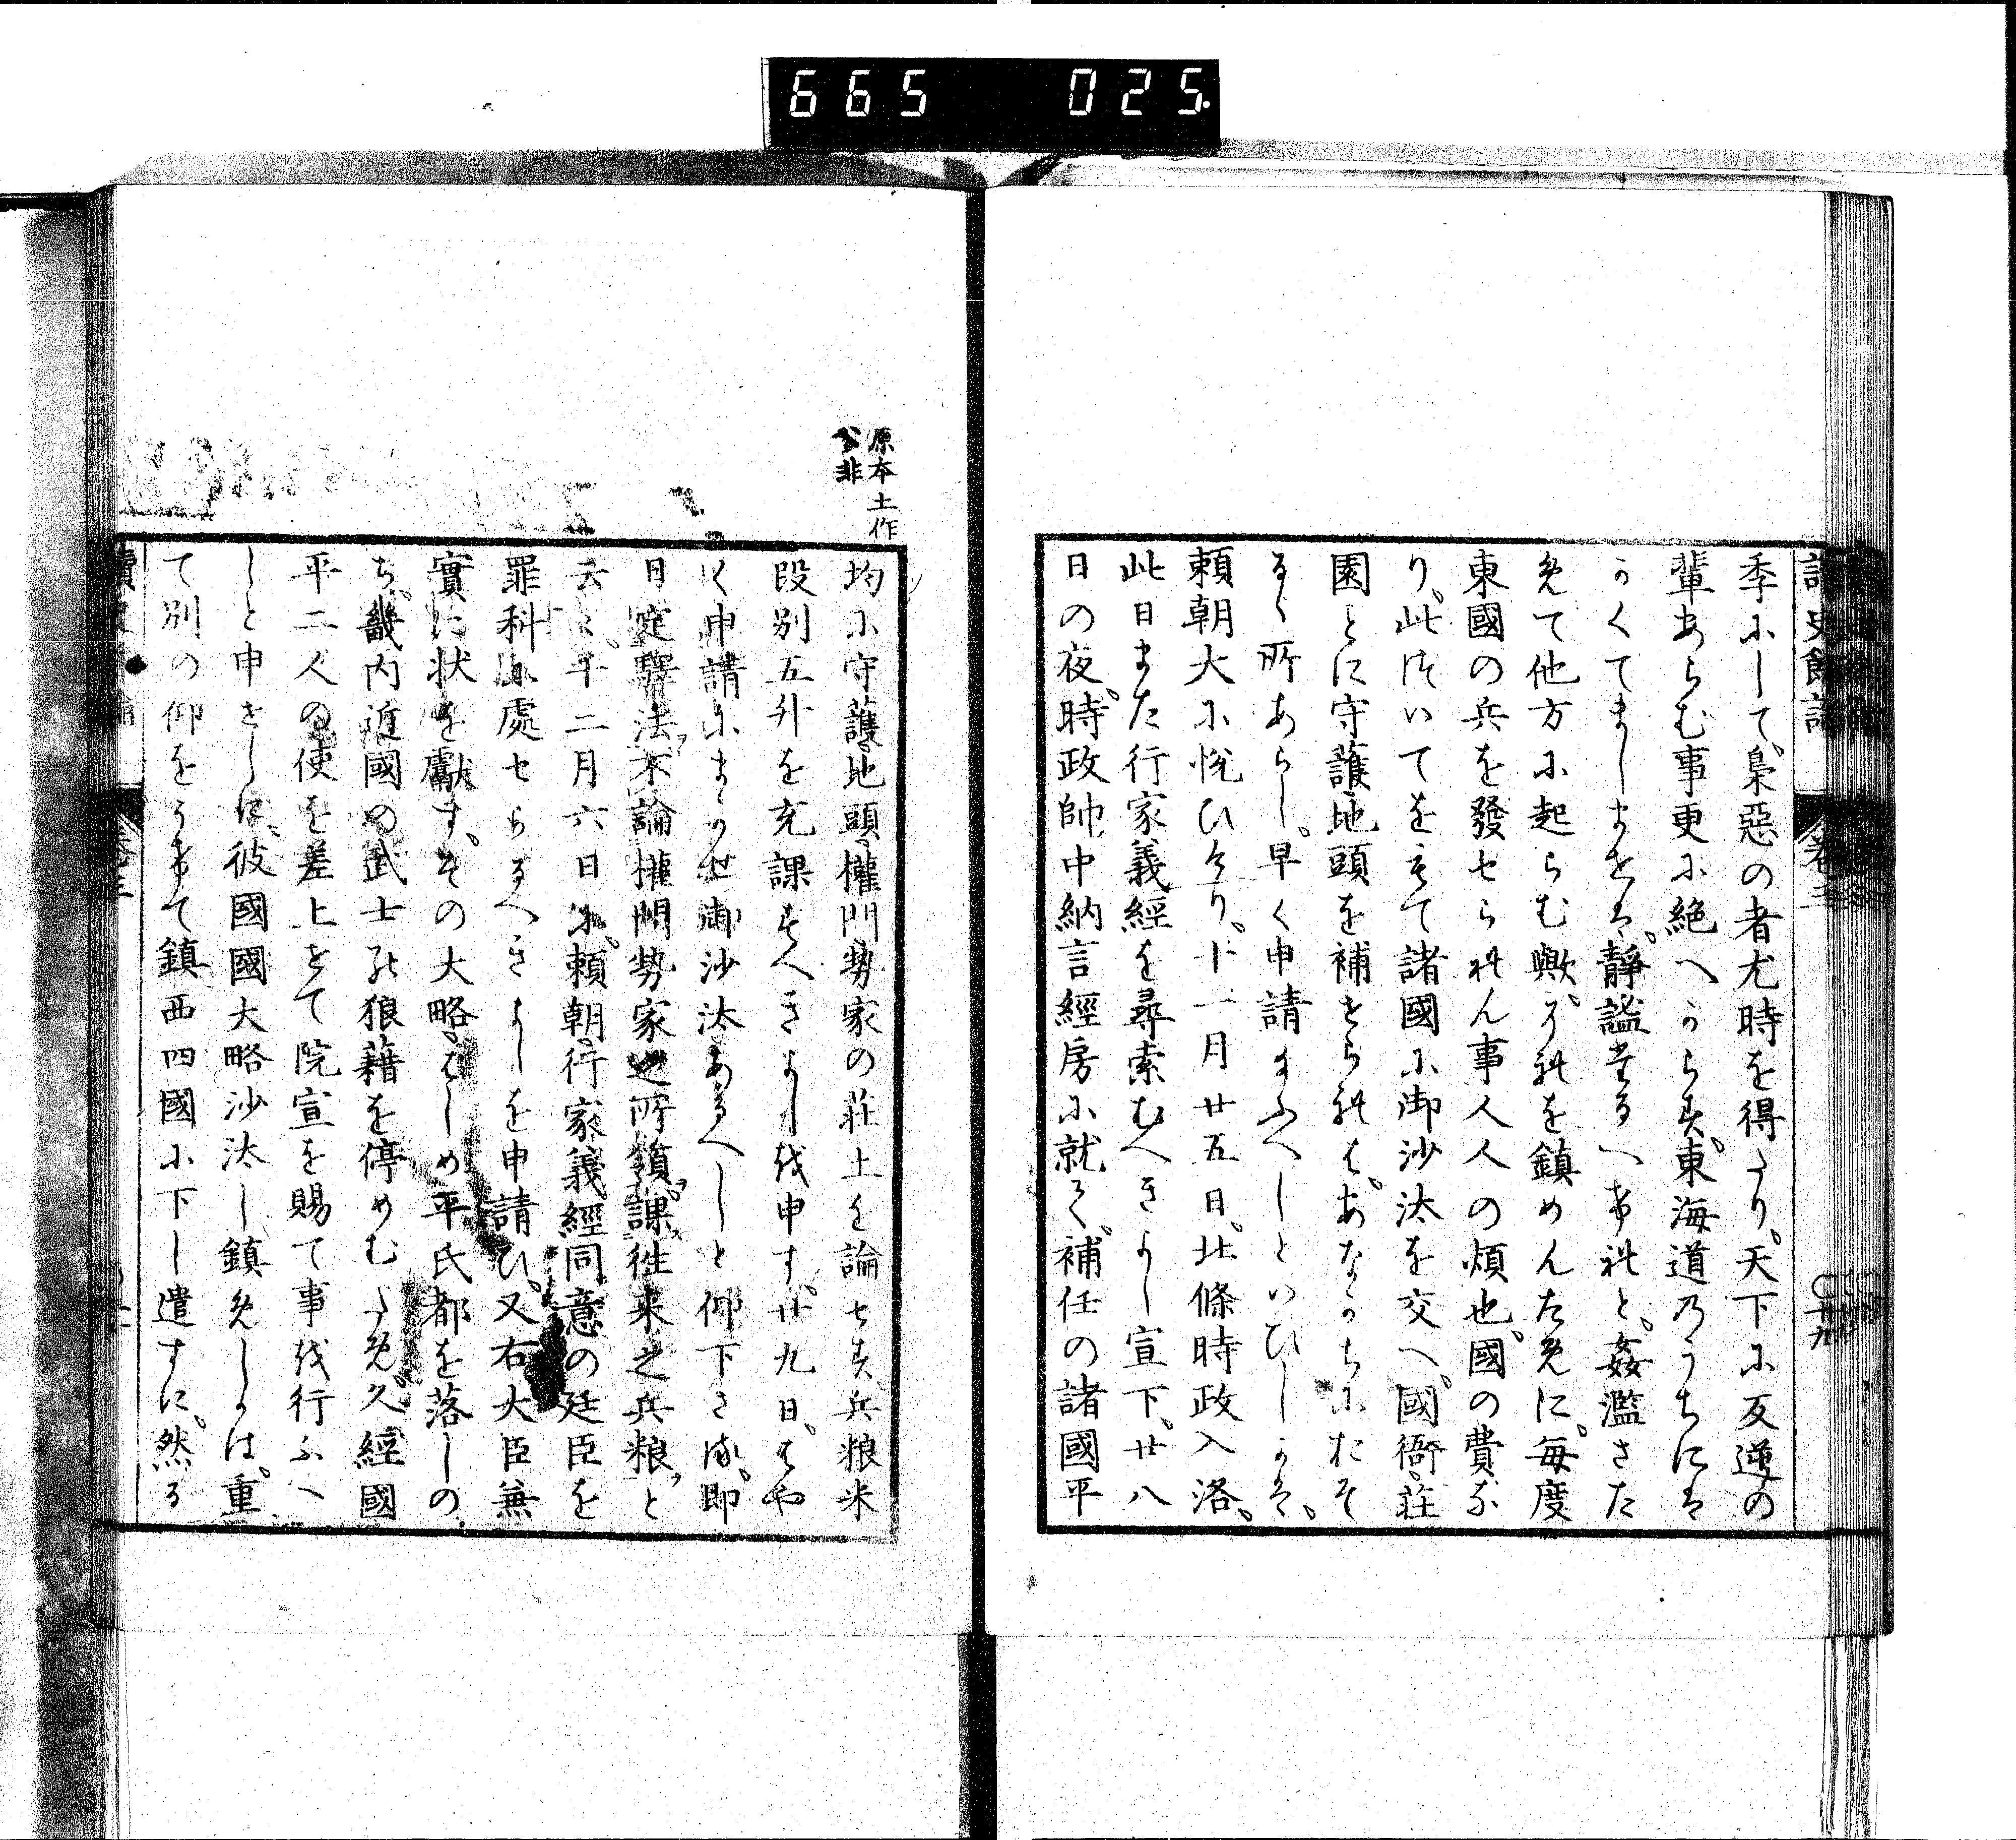 665 025
季にして、梟惡の者尤時を得たり。天下に反逆の
輩あらむ事更に絶へからす。東海道のうちには
かくてましませは、靜謐たるへけれと、姦濫さた
めて他方に起らむ歟。それを鎮めんために、毎度
東國の兵を發せられん事人人の煩也。國の費な
り。此ついてをもて諸國に御沙汰を交へ、國衙荘
園とに守護地頭を補せられは、あなかちにおそ
るゝ所あらし。早く申請まふへしといひしかは、
頼朝大に悅ひけり。十一月廿五日、北條時政入洛。
此日また行家義經を尋索むへきよし宣下。廿八
日の夜、時政帥中納言經房に就て、補任の諸國平
原本土作
公非
均に守護地頭權門勢家の荘土を論せす兵粮米
段別五升を充課すへきよし申す。廿九日、はや
く申請にまかせ御沙汰あるへしと仰下さる。即
日定驛法、不論權門勢家之所領、課往来之兵粮と
云々。十二月六日に、頼朝行家義經同意の廷臣を
罪科に處せらるへきよしを申請ひ、又右大臣兼
實に状を獻す。その大略、はしめ平氏都を落しの
ち、畿内近國の武士の狼藉を停めむため、久經國
平二人の使を差上せて院宣を賜て事を行ふへ
しと申せしに、彼國國大略沙汰し鎮めしかは、重
て別の仰をうけて鎮西四國に下し遣すに、然る